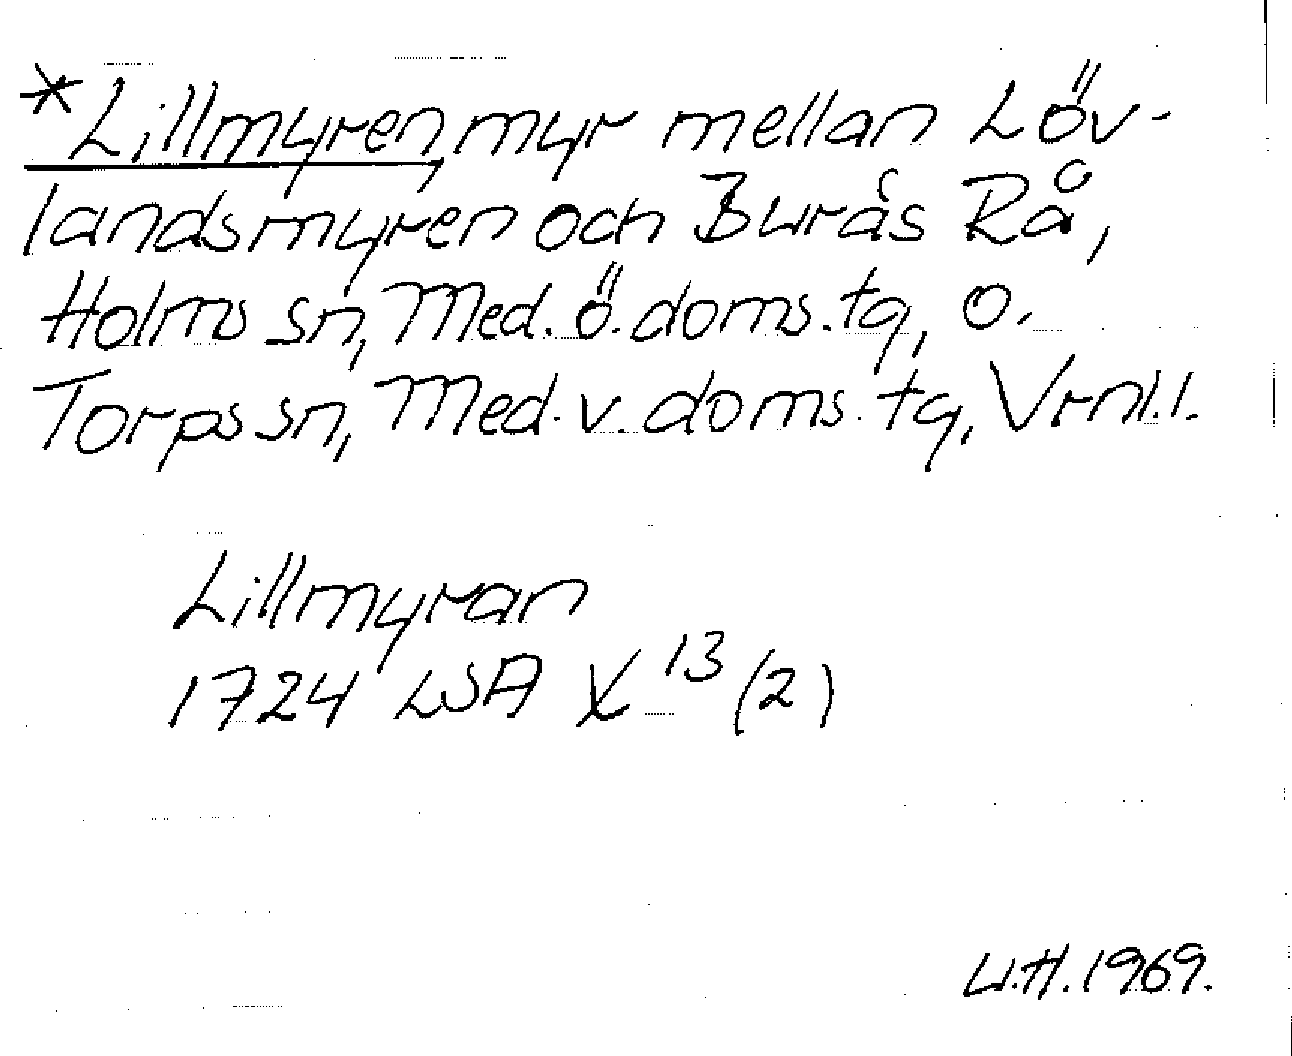 *Lillmyren, myr mellan Löv-
landsmyren och Burås Rå,
Holms sn, Med. ö. doms. tg, o.
Torps sn, Med. v. doms. tg, Vrnl.l.
Lillmyran
1724 LSA X 13 (2)
U.H. 1969.